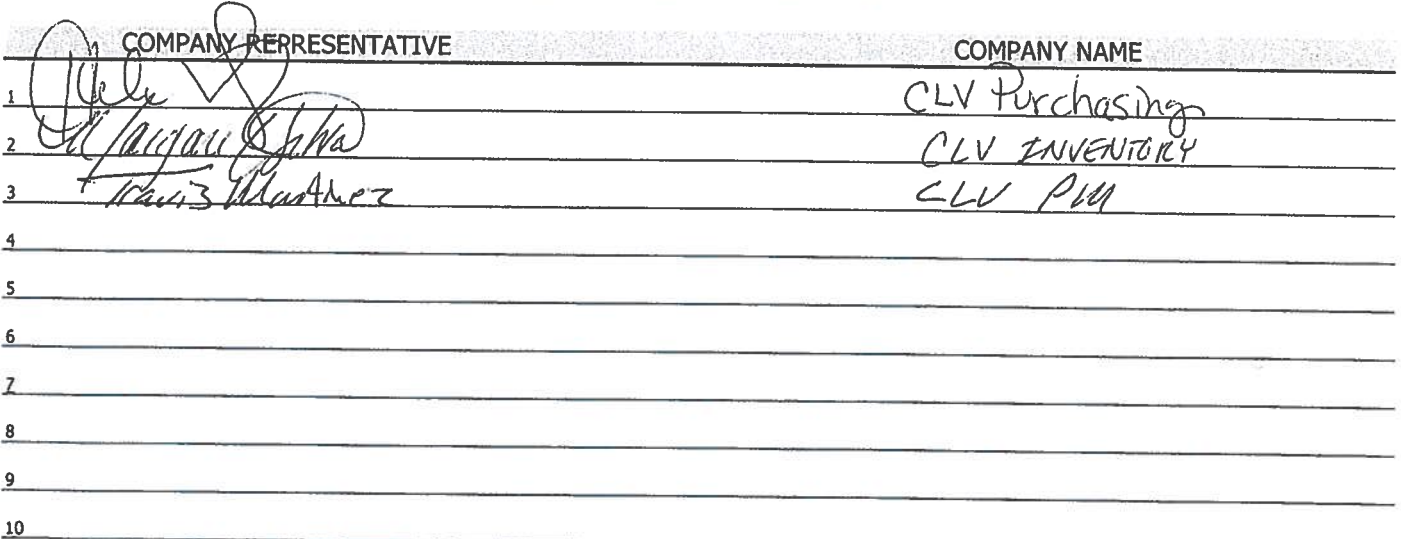 COMPANY REPRESENTATIVE COMPANY NAME
1 CLV Purchasing
2 CLV INVENTORY
3 Travis Martinez CLV PM
4
5
6
7
8
9
10